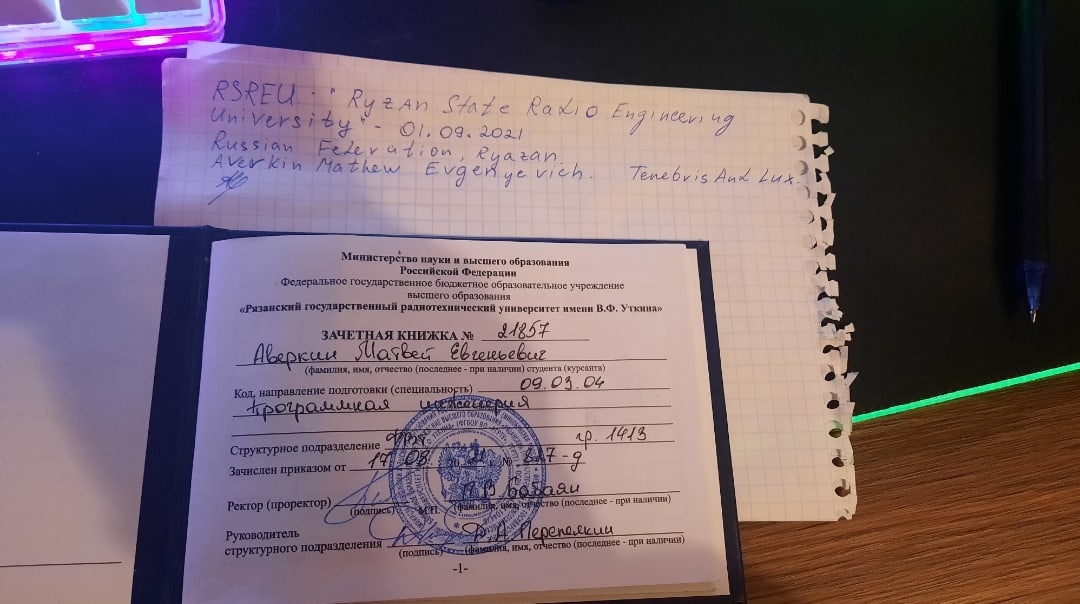 RSREU - " Ryzan State Radio Engineering
University" - 01.09.2021
Russian Federation, Ryazan
Averkin Mathew Evgenyevich. Tenebris And Lux.
Министерство науки и высшего образования
Российской Федерации
Федеральное государственное бюджетное образовательное учреждение
высшего образования
«Рязанский государственный радиотехнический университет имени В.Ф. Уткина»
ЗАЧЕТНАЯ КНИЖКА № 21857
Аверкин Матвей Евгеньевич
(фамилия, имя, отчество (последнее - при наличии) студента (курсанта)
Код, направление подготовки (специальность) 09.03.04
Программная инженерия
Структурное подразделение гр. 1413
Зачислен приказом от 17 08. 20 21 г. № 827-д
Ректор (проректор)
(подпись) М.П. (фамилия, имя, отчество (последнее - при наличии)
Руководитель
структурного подразделения Д.А. Перепелкин
(подпись) (фамилия, имя, отчество (последнее - при наличии)
-1-